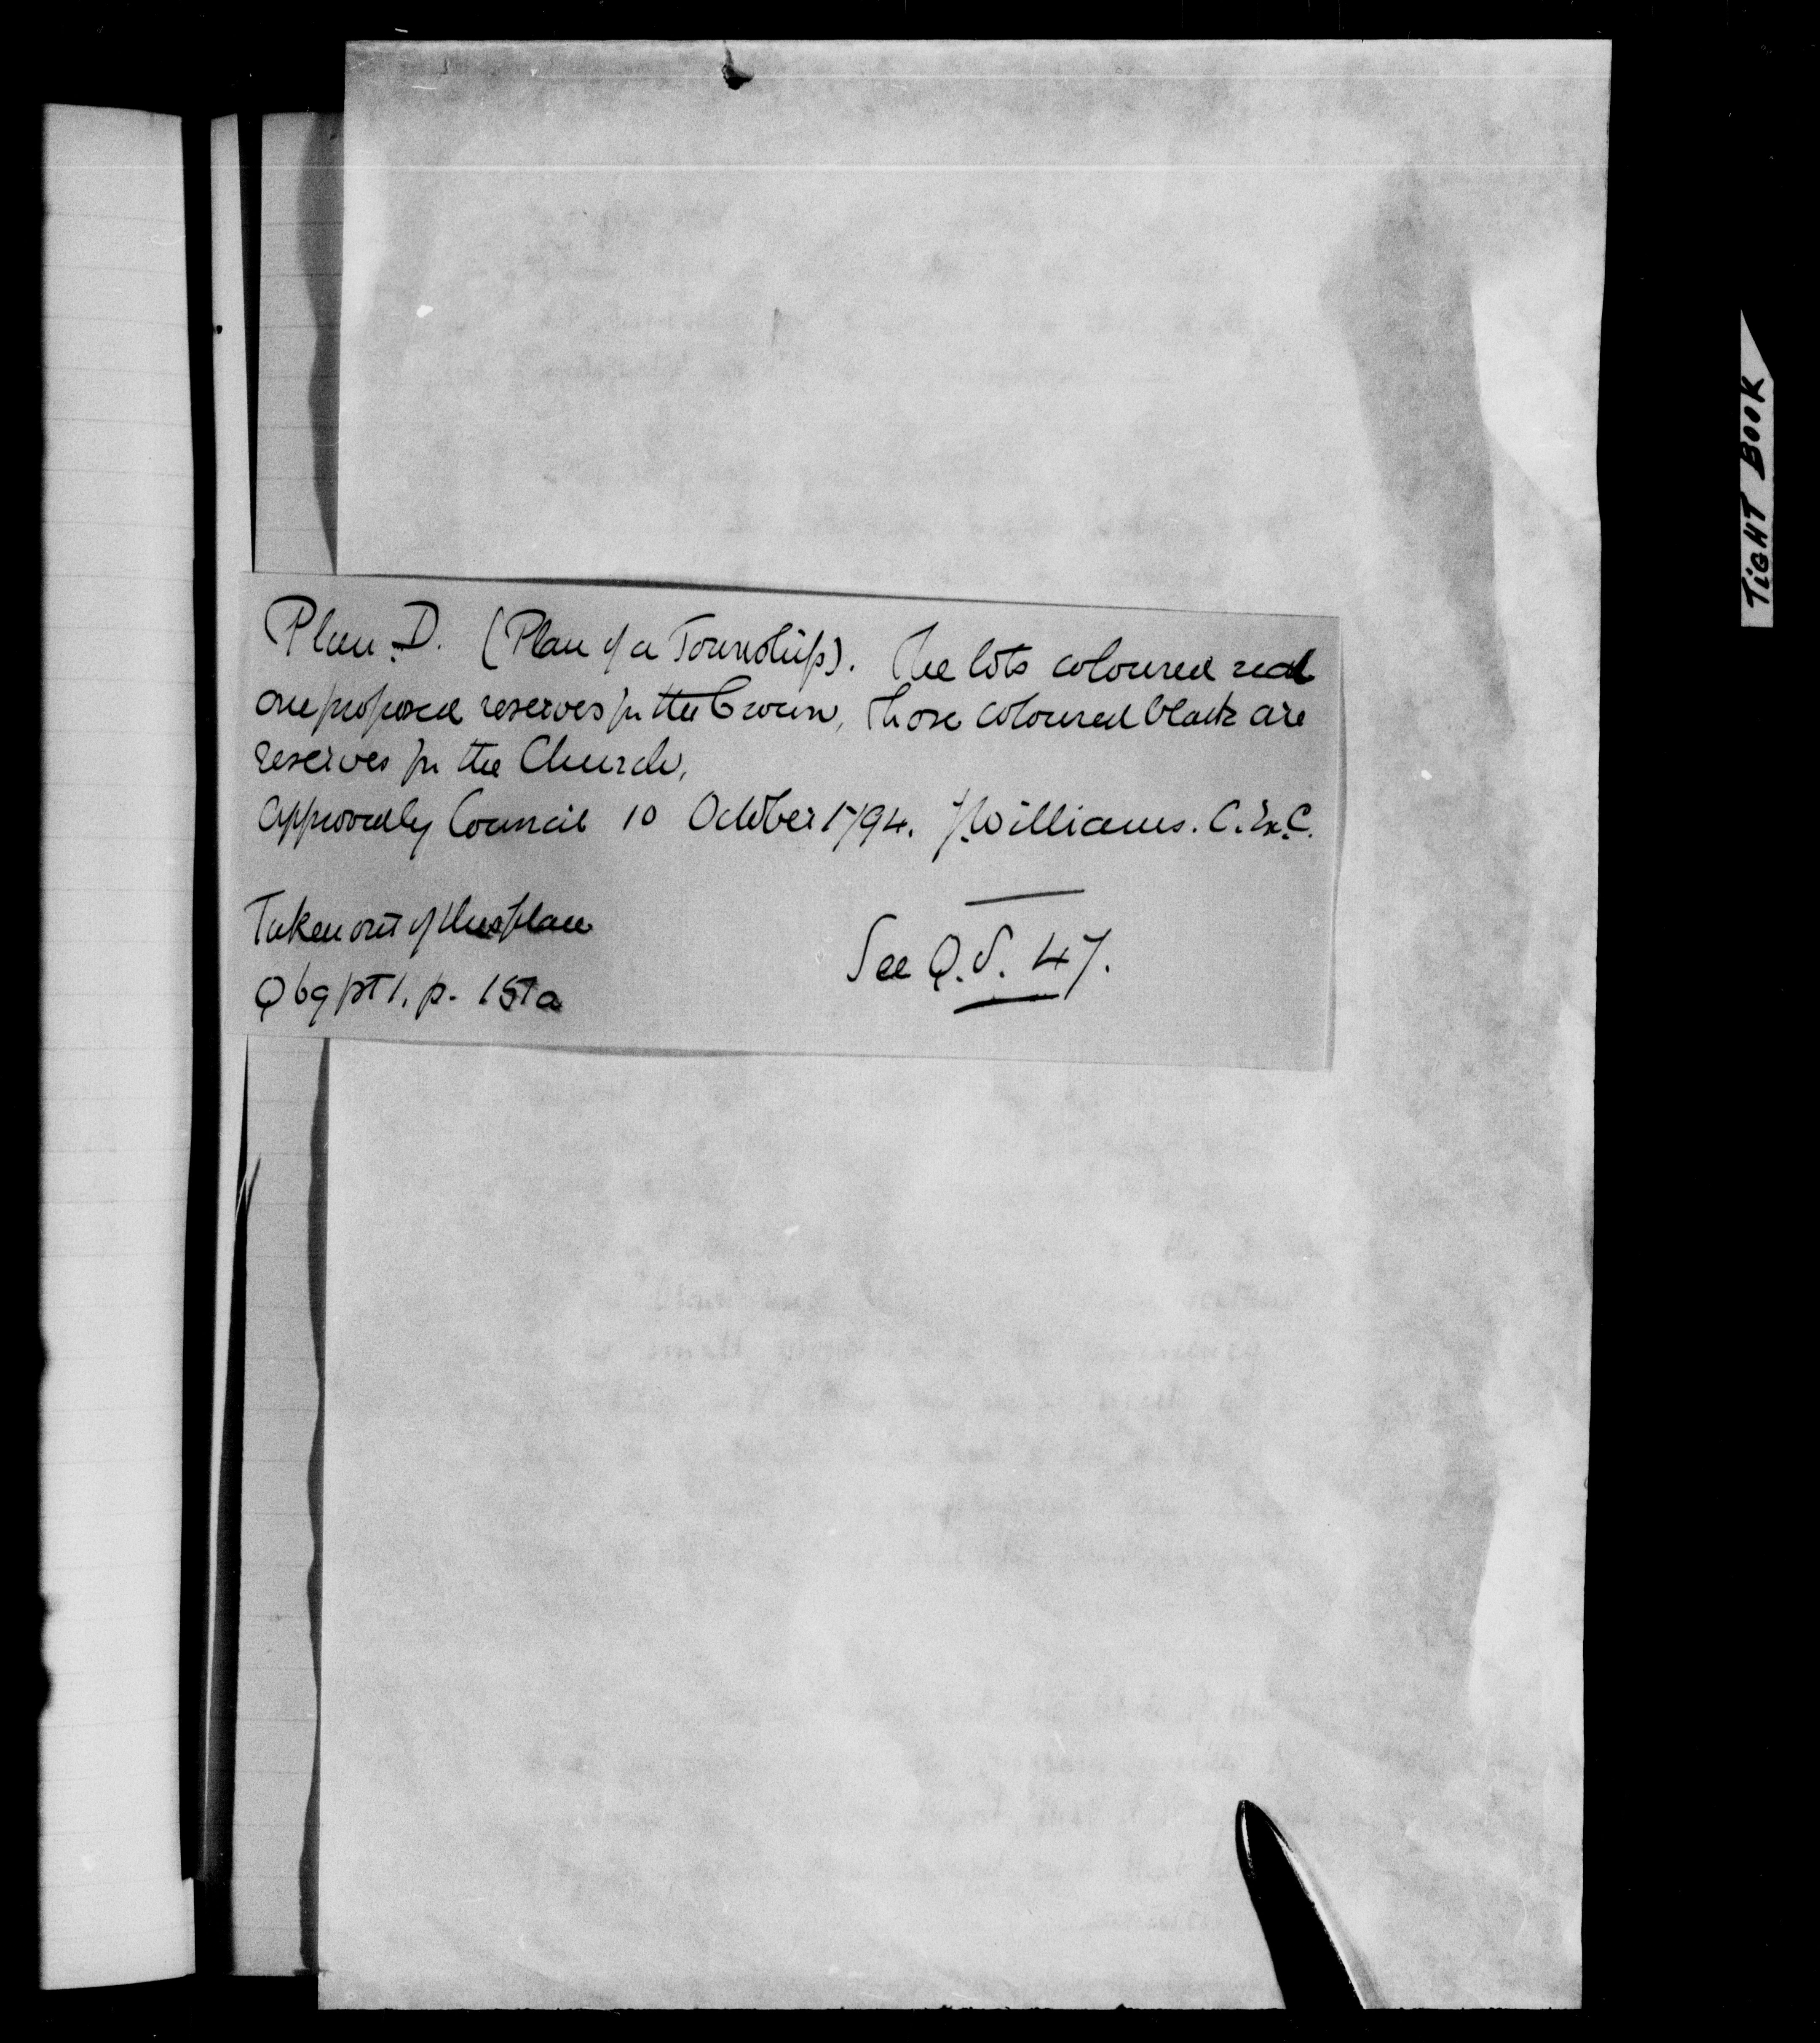 Plan D. (Plan of a Township). The lots coloured red
are proposed reserves for the Crown, those coloured black are
reserves for the Church,
Approved by Council 10 October 1794. J. Williams. C. Ex. C.
Taken out of this plan
Q 69 pt 1. p. 151a
See Q.S. 47.
TIGHT BOOK